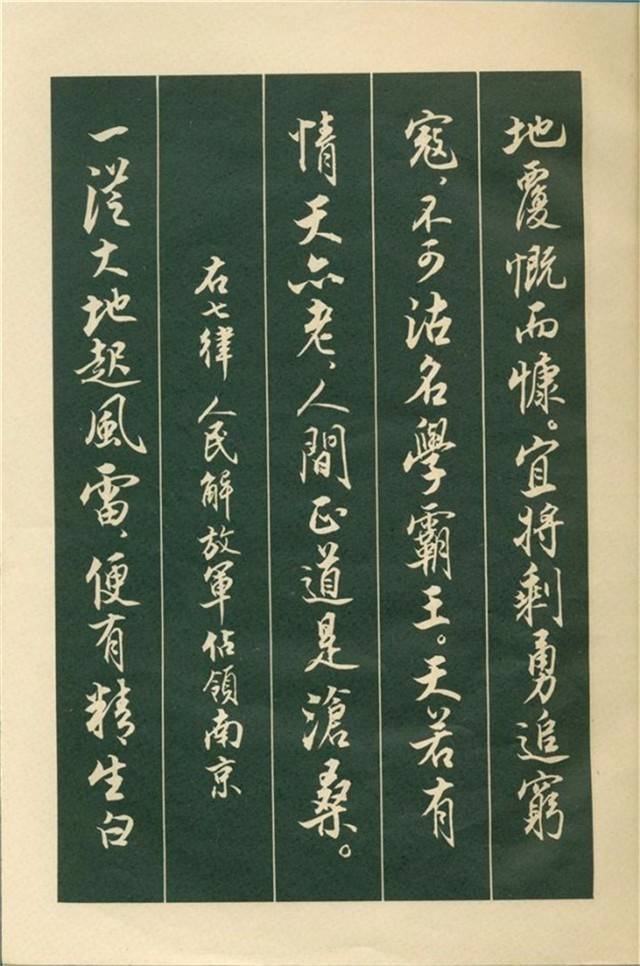 地覆慨而慷。宜將剩勇追窮
寇，不可沽名學霸王。天若有
情天亦老，人間正道是滄桑。
右七律 人民解放軍佔領南京
一從大地起風雷，便有精生白